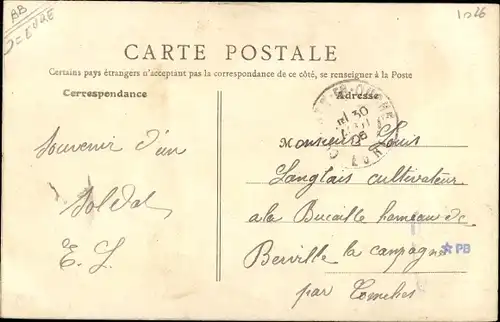 BB
1026
CARTE POSTALE
Certains pays étrangers n'acceptant pas la correspondance de ce côté, se renseigner à la Poste
Correspondance
Adresse
Souvenir d'un
Soldat
E. L.
Monsieur Louis
Langlais cultivateur
a la Bucaille hameau de
Berville la campagne
par
30
EURE
PB